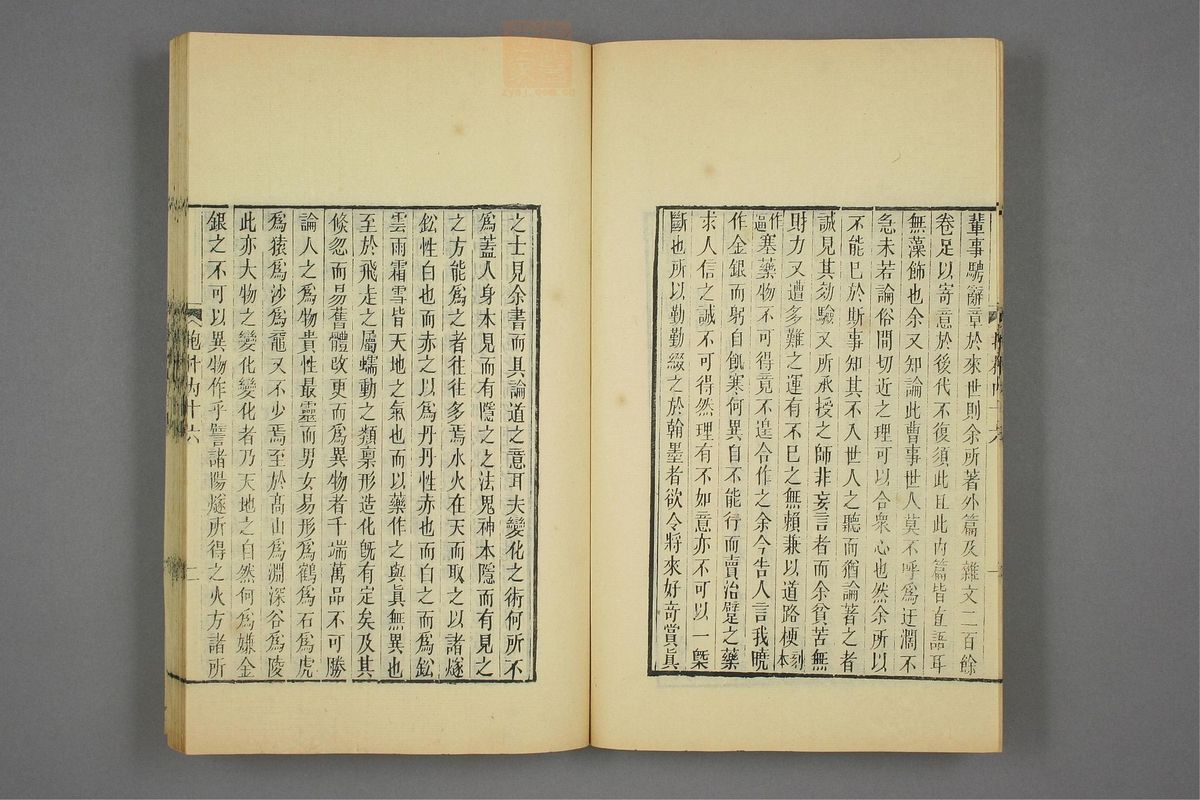 輩事騁辭章於來世則余所著外篇及雜文二百餘
卷足以寄意於後代不復須此且此內篇皆直語耳
無藻飾也余又知論此曹事世人莫不呼爲迂濶不
急未若論俗間切近之理可以合衆心也然余所以
不能已於斯事知其不入世人之聽而猶論著之者
誠見其効驗又所承授之師非妄言者而余貧苦無
財力又遭多難之運有不已之無賴兼以道路梗刻本
作逼塞藥物不可得竟不遑合作之余今告人言我曉
作金銀而躬自飢寒何異自不能行而賣治躄之藥
求人信之誠不可得然理有不如意亦不可以一槩
斷也所以勤勤綴之於翰墨者欲令將來好奇賞眞
之士見余書而具論道之意耳夫變化之術何所不
爲蓋人身本見而有隱之之法鬼神本隱而有見之
之方能爲之者往往多焉水火在天而取之以諸燧
鈆性白也而赤之以爲丹丹性赤也而白之而爲鈆
雲雨霜雪皆天地之氣也而以藥作之與眞無異也
至於飛走之屬蠕動之類稟形造化旣有定矣及其
倐忽而易舊體改更而爲異物者千端萬品不可勝
論人之爲物貴性最靈而男女易形爲鶴爲石爲虎
爲猿爲沙爲黿又不少焉至於髙山爲淵深谷爲陵
此亦大物之變化變化者乃天地之自然何爲嫌金
銀之不可以異物作乎譬諸陽燧所得之火方諸所
抱朴內十六
二